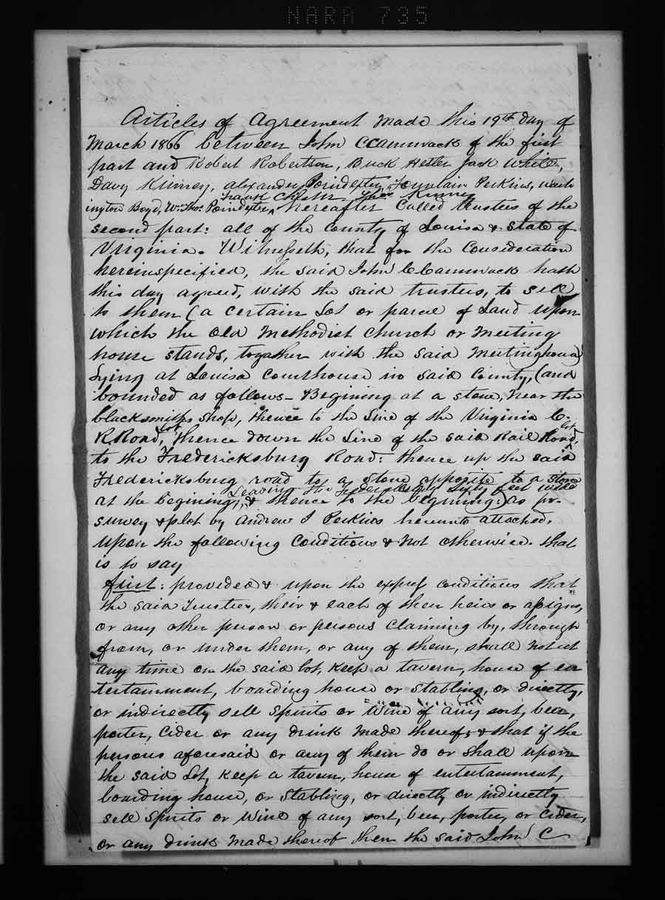 NARA 735
Articles of Agreement made this 19th day of
March 1866 between John C Cammack of the first
part and Robert Robertson, Buck Hetler Jack White,
Davy Kinney, alexander Poindexter, Fountain Perkins, Wash
Frank
ington Boyd, Wm Thos. Poindexter, hereafter Called trustees of the
second part: all of the County of Louisa & State of
Virginia. Witnesseth, that for the Consideration
hereinspecified, the said John C Cammack hath
this day agreed, with the said trustees, to sell
to them (a certain Lot or parcel of Land upon
which the old Methodist Church or Meeting
house stands, together with the said Meetinghouse)
Lying at Louisa Courthouse in said County, (and
bounded as follows - Begining at a stone, near the
blacksmiths shop, thence to the line of the Virginia C.
R. Road Lot, thence down the line of the said Rail Road Lot,
to the Fredericksburg Road: thence up the said
Fredericksburg road to a stone opposite to a stone
Leaving the feet wide
at the begining, & thence to the begining) as pr.
survey & plot by Andrew J Perkins hereunto attached,
upon the following Conditions & not otherwise. that
is to say
first: provided & upon the express conditions that
the said Trustees, their & each of their heirs or assigns,
or any other person or persons claiming by, through
from, or under them, or any of them, shall not at
any time on the said lot, keep a tavern, house of en
tertainment, boarding house or stabling, or directly,
or indirectly sell spirits or wine of any sort, beer,
porter, Cider or any drink made thereof; & that if the
persons aforesaid or any of them do or shall upon
the said Lot, keep a tavern, house of entertainment,
boarding house, or stabling, or directly or indirectly
sell spirits or wine of any sort, beer, porter, or Cider,
or any drink made thereof then the said John C